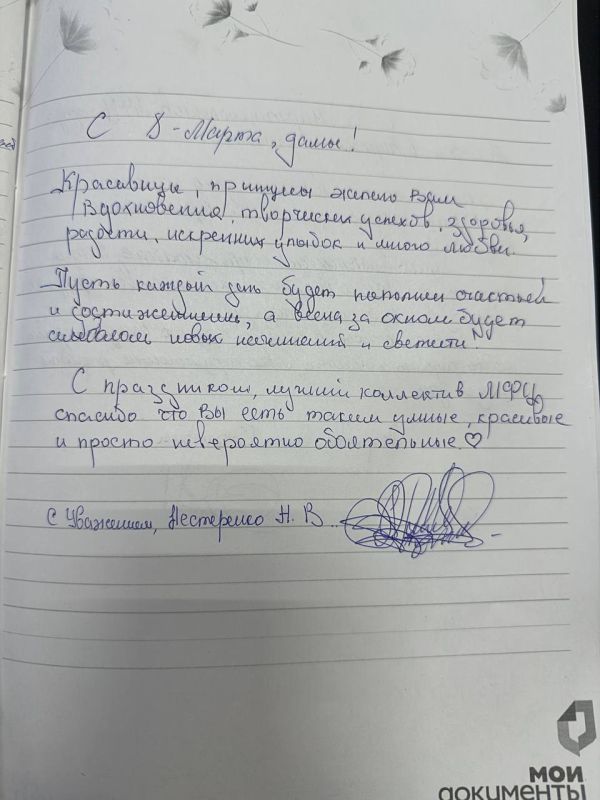 С 8-Марта, дамы!
Красавицы, принцессы желаю Вам
Вдохновения, творческих успехов, здоровья,
радости, искренних улыбок и много любви.
Пусть каждый день будет наполнен счастьем
и достижениями, а весна за окном будет
символом новых начинаний и светлости!
С праздником, лучший коллектив МФЦ,
спасибо что Вы есть такие умные, красивые
и просто невероятно обаятельные ♡
С Уважением, Нестеренко Н. В.
МОИ
документы